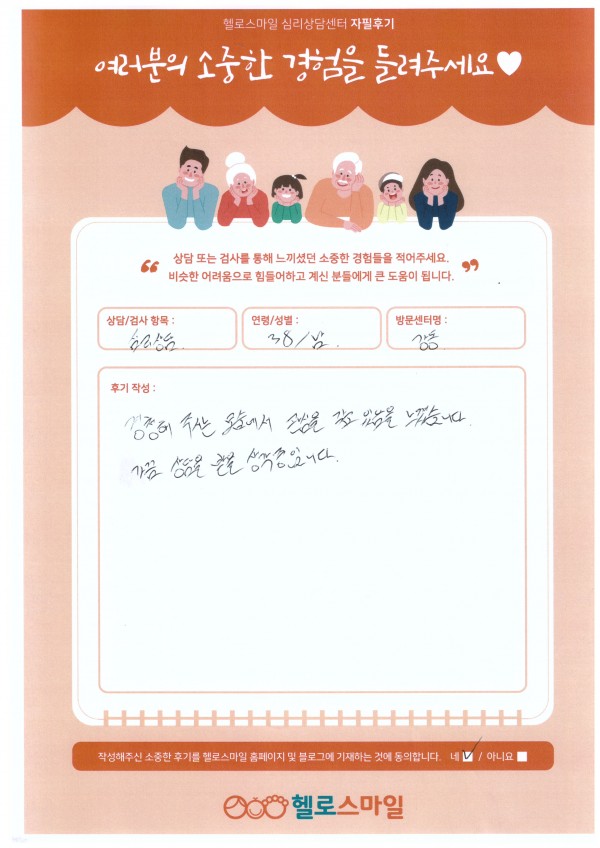 헬로스마일 심리상담센터 자필후기
여러분의 소중한 경험을 들려주세요
상담 또는 검사를 통해 느끼셨던 소중한 경험들을 적어주세요.
비슷한 어려움으로 힘들어하고 계신 분들에게 큰 도움이 됩니다.
상담/검사 항목 :
심리상담
연령/성별 :
38/남
방문센터명 :
강동
후기 작성 :
경청해 주시는 모습에서 진심을 갖고 있음을 느꼈습니다.
가끔 상담을 받을 생각중입니다.
작성해주신 소중한 후기를 헬로스마일 홈페이지 및 블로그에 기재하는 것에 동의합니다. 네 / 아니요
헬로스마일